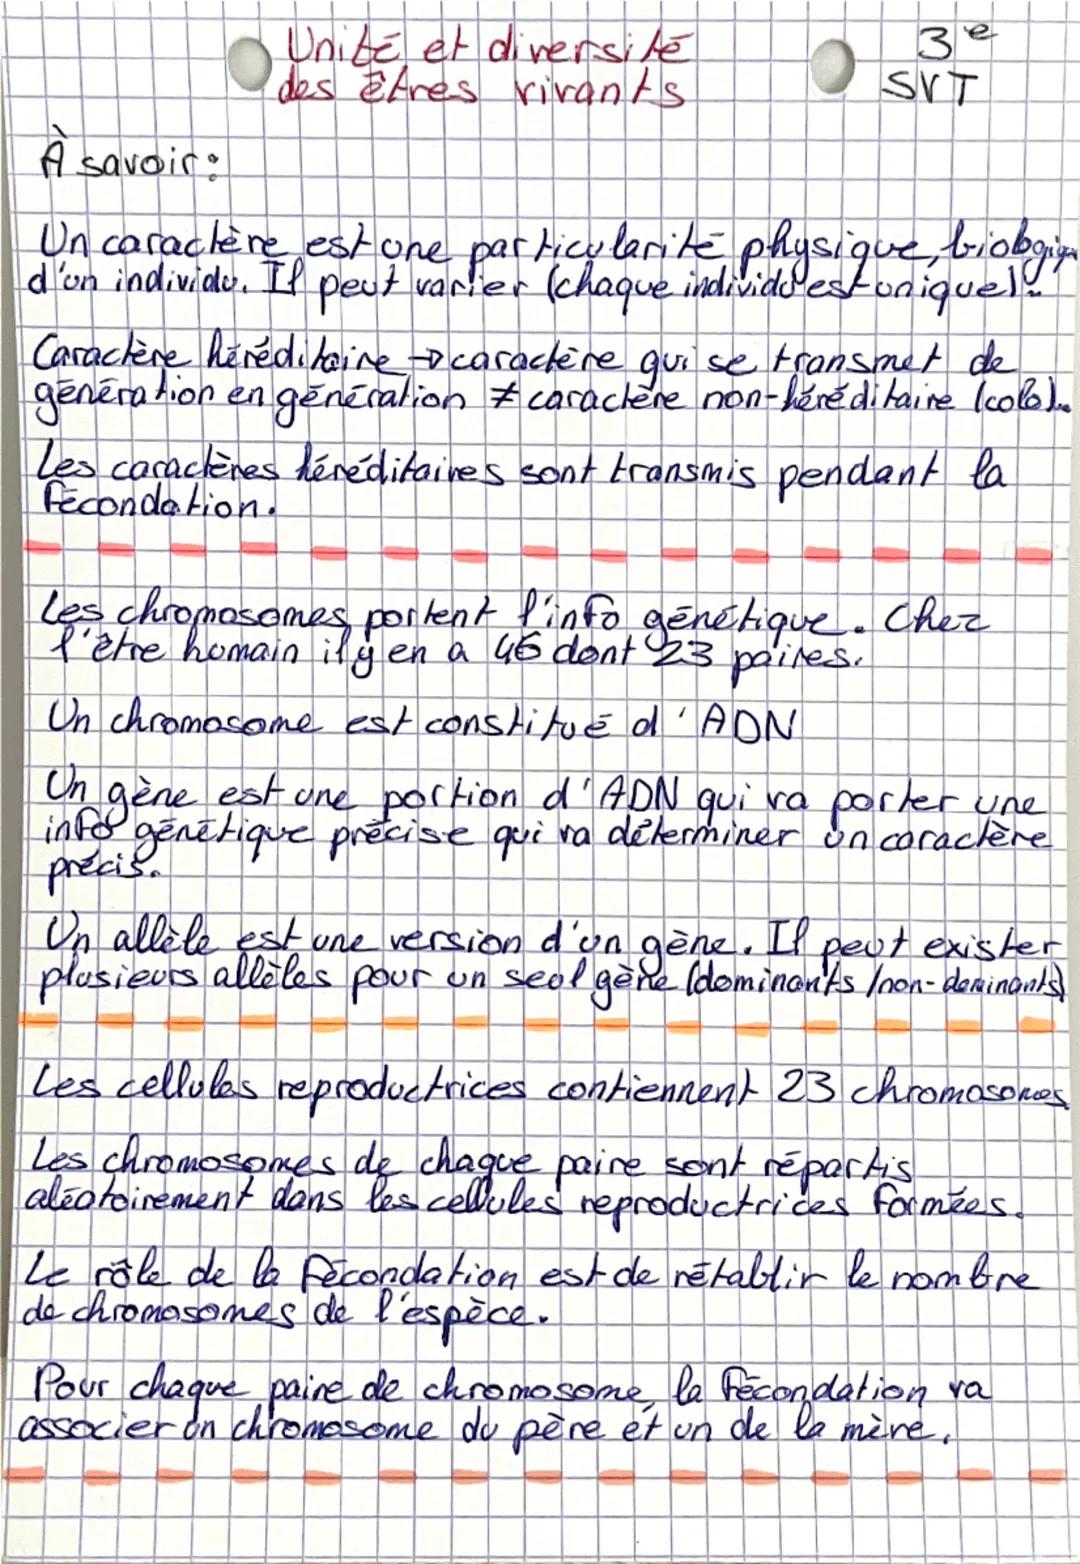 Unité et diversité
des êtres vivants
3e
SVT
À savoir :
Un caractère est une particularité physique, biologique
d'un individu. Il peut varier (chaque individu est unique).
Caractère héréditaire → caractère qui se transmet de
génération en génération ≠ caractère non-héréditaire (colo).
Les caractères héréditaires sont transmis pendant la
fécondation.
Les chromosomes portent l'info génétique. Chez
l'être humain il y en a 46 dont 23 paires.
Un chromosome est constitué d'ADN
Un gène est une portion d'ADN qui va porter une
info génétique précise qui va déterminer un caractère
précis.
Un allèle est une version d'un gène. Il peut exister
plusieurs allèles pour un seul gène (dominants/non-dominants)
Les cellules reproductrices contiennent 23 chromosomes
Les chromosomes de chaque paire sont répartis
aléatoirement dans les cellules reproductrices formées.
Le rôle de la fécondation est de rétablir le nombre
de chromosomes de l'espèce.
Pour chaque paire de chromosome, la fécondation va
associer un chromosome du père et un de la mère.